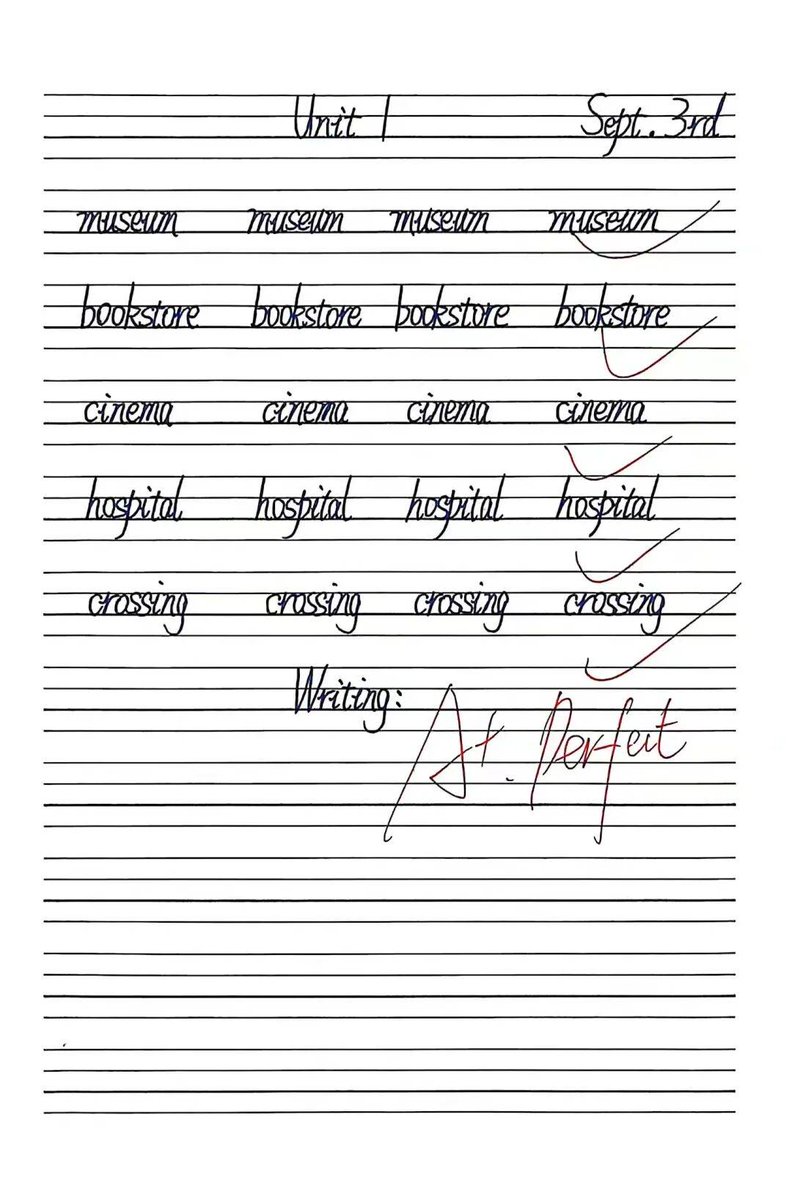 Unit 1 Sept. 3rd
museum museum museum museum
bookstore bookstore bookstore bookstore
cinema cinema cinema cinema
hospital hospital hospital hospital
crossing crossing crossing crossing
Writing: A+. Perfect